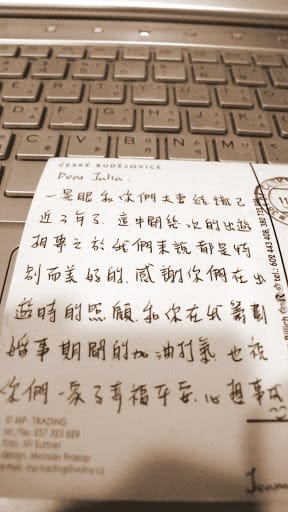 ČESKÉ BUDĚJOVICE
Dear Julia,
一晃眼和你們夫妻結識已
近2年了. 這中間幾次的出遊
相專之於我們來說都是特
別而美好的. 感謝你們在出
遊時的照顧. 和你在我籌劃
婚事期間的加油打氣. 也祝
你們一家子幸福平安. 心想事成
© MP-TRADING
tel./fax: 257 323 689
foto: Jiří Suttner
design: Miroslav Prokop
e-mail: mp-trading@volny.cz
tel: 602 443 408
Joann